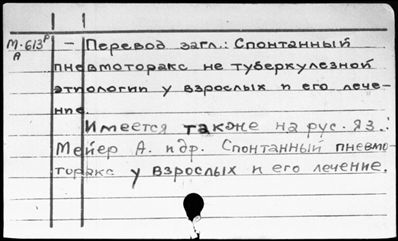 М-613р - Перевод загл.: Спонтанный
А
пневмоторакс не туберкулезной
этиологии у взрослых и его лече-
ние.
Имеется также на рус. яз.:
Мейер А. и др. Спонтанный пневмо-
торакс у взрослых и его лечение.